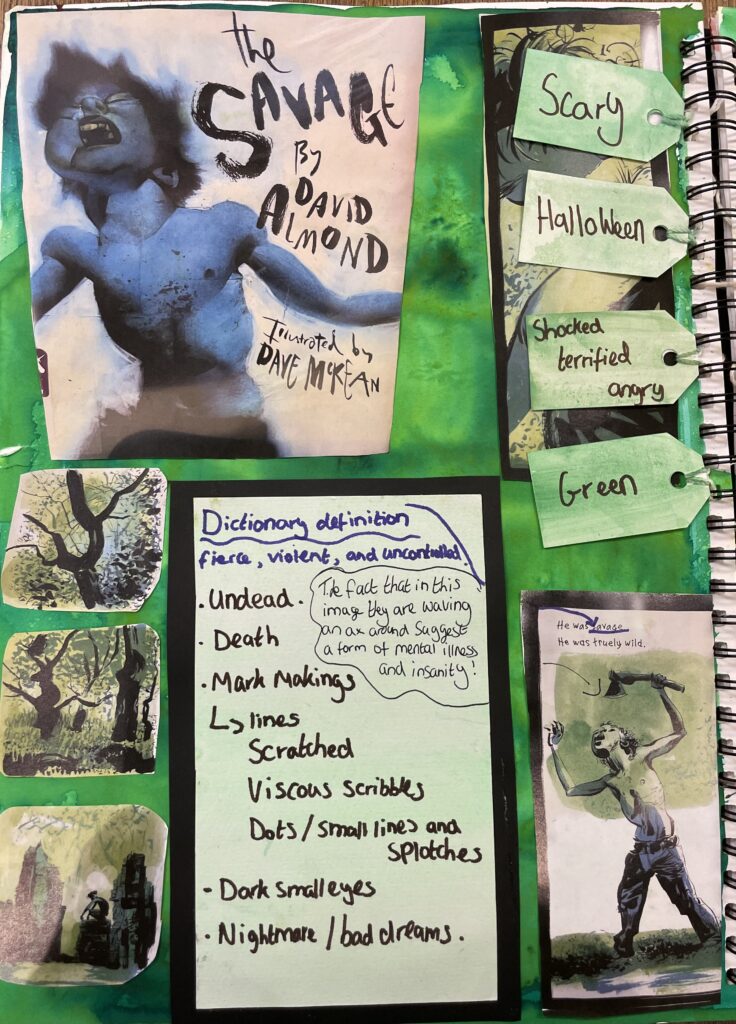 the
SAVAGE
By
DAVID
ALMOND
Illustrated by
DAVE McKEAN
Scary
Halloween
Shocked
terrified
angry
Green
Dictionary definition
fierce, violent, and uncontrolled.
. Undead .
. Death
. Mark Makings
↳ lines
Scratched
Viscous scribbles
Dots / small lines and
splotches
. Dark small eyes
. Nightmare / bad dreams .
The fact that in this
image they are waving
an ax around suggest
a form of mental illness
and insanity!
He was savage.
He was truely wild.